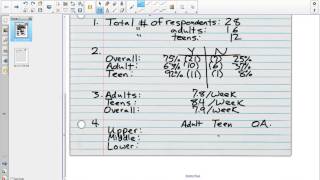 1. Total # of respondents: 28
adults: 16
teens: 12
2. Y N
Overall: 75% (21) (7) 25%
Adult: 63% (10) (6) 37%
Teen: 92% (11) (1) 8%
3. Adults: 7.8/week
Teens: 8.4/week
Overall: 7.9/week
4. Adult Teen O.A.
Upper:
Middle:
Lower: